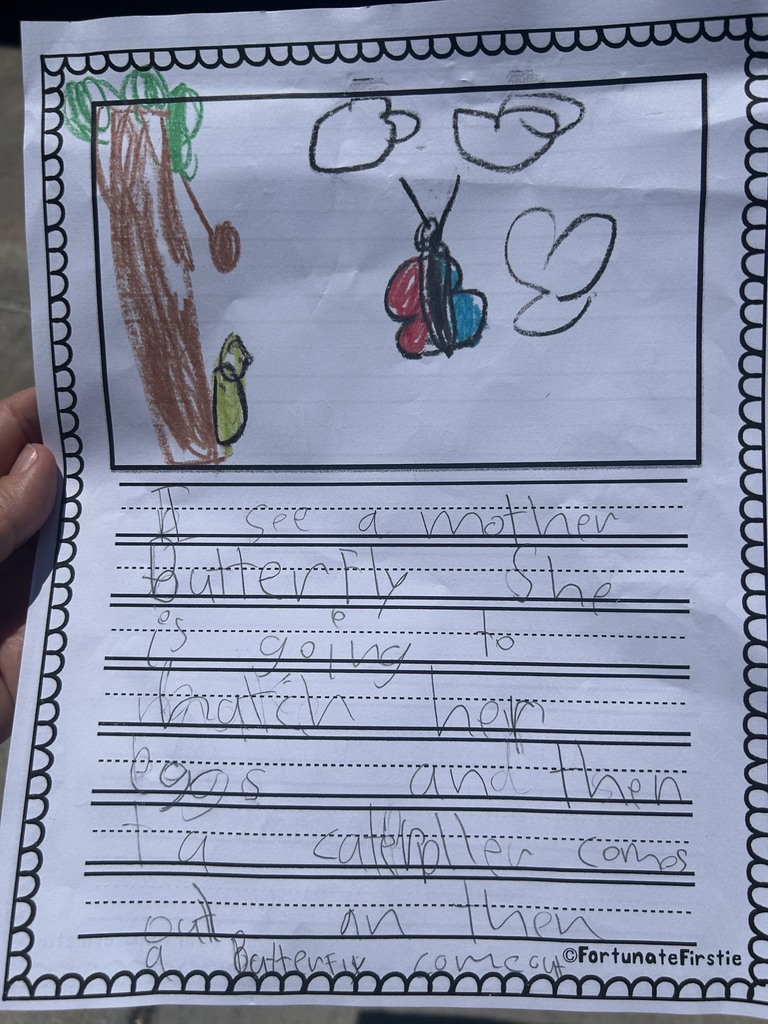 I see a mother
Butterfly She
is going to
hatch her
eggs and then
a caterpller comes
out an then
a Butterfly comeout
©FortunateFirstie